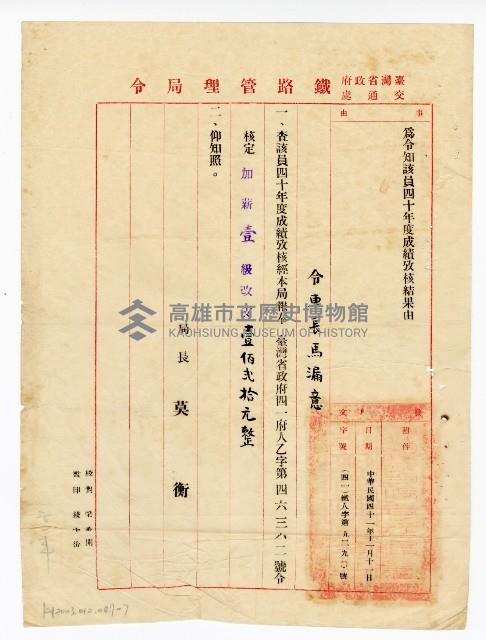 臺灣省政府
交通處
鐵路管理局令
事由
為令知該員四十年度成績攷核結果由
令車長馬漏意
一、查該員四十年度成績攷核經本局報奉臺灣省政府四一府人乙字第四六三六二號令
核定加薪壹級改支壹佰弍拾元整
二、仰知照。
局長 莫衡
附件
日期 中華民國四十一年十一月十一日
文字號 (四一)鐵人字第九三二九〇號
校對
監印
高雄市立歷史博物館
KAOHSIUNG MUSEUM OF HISTORY